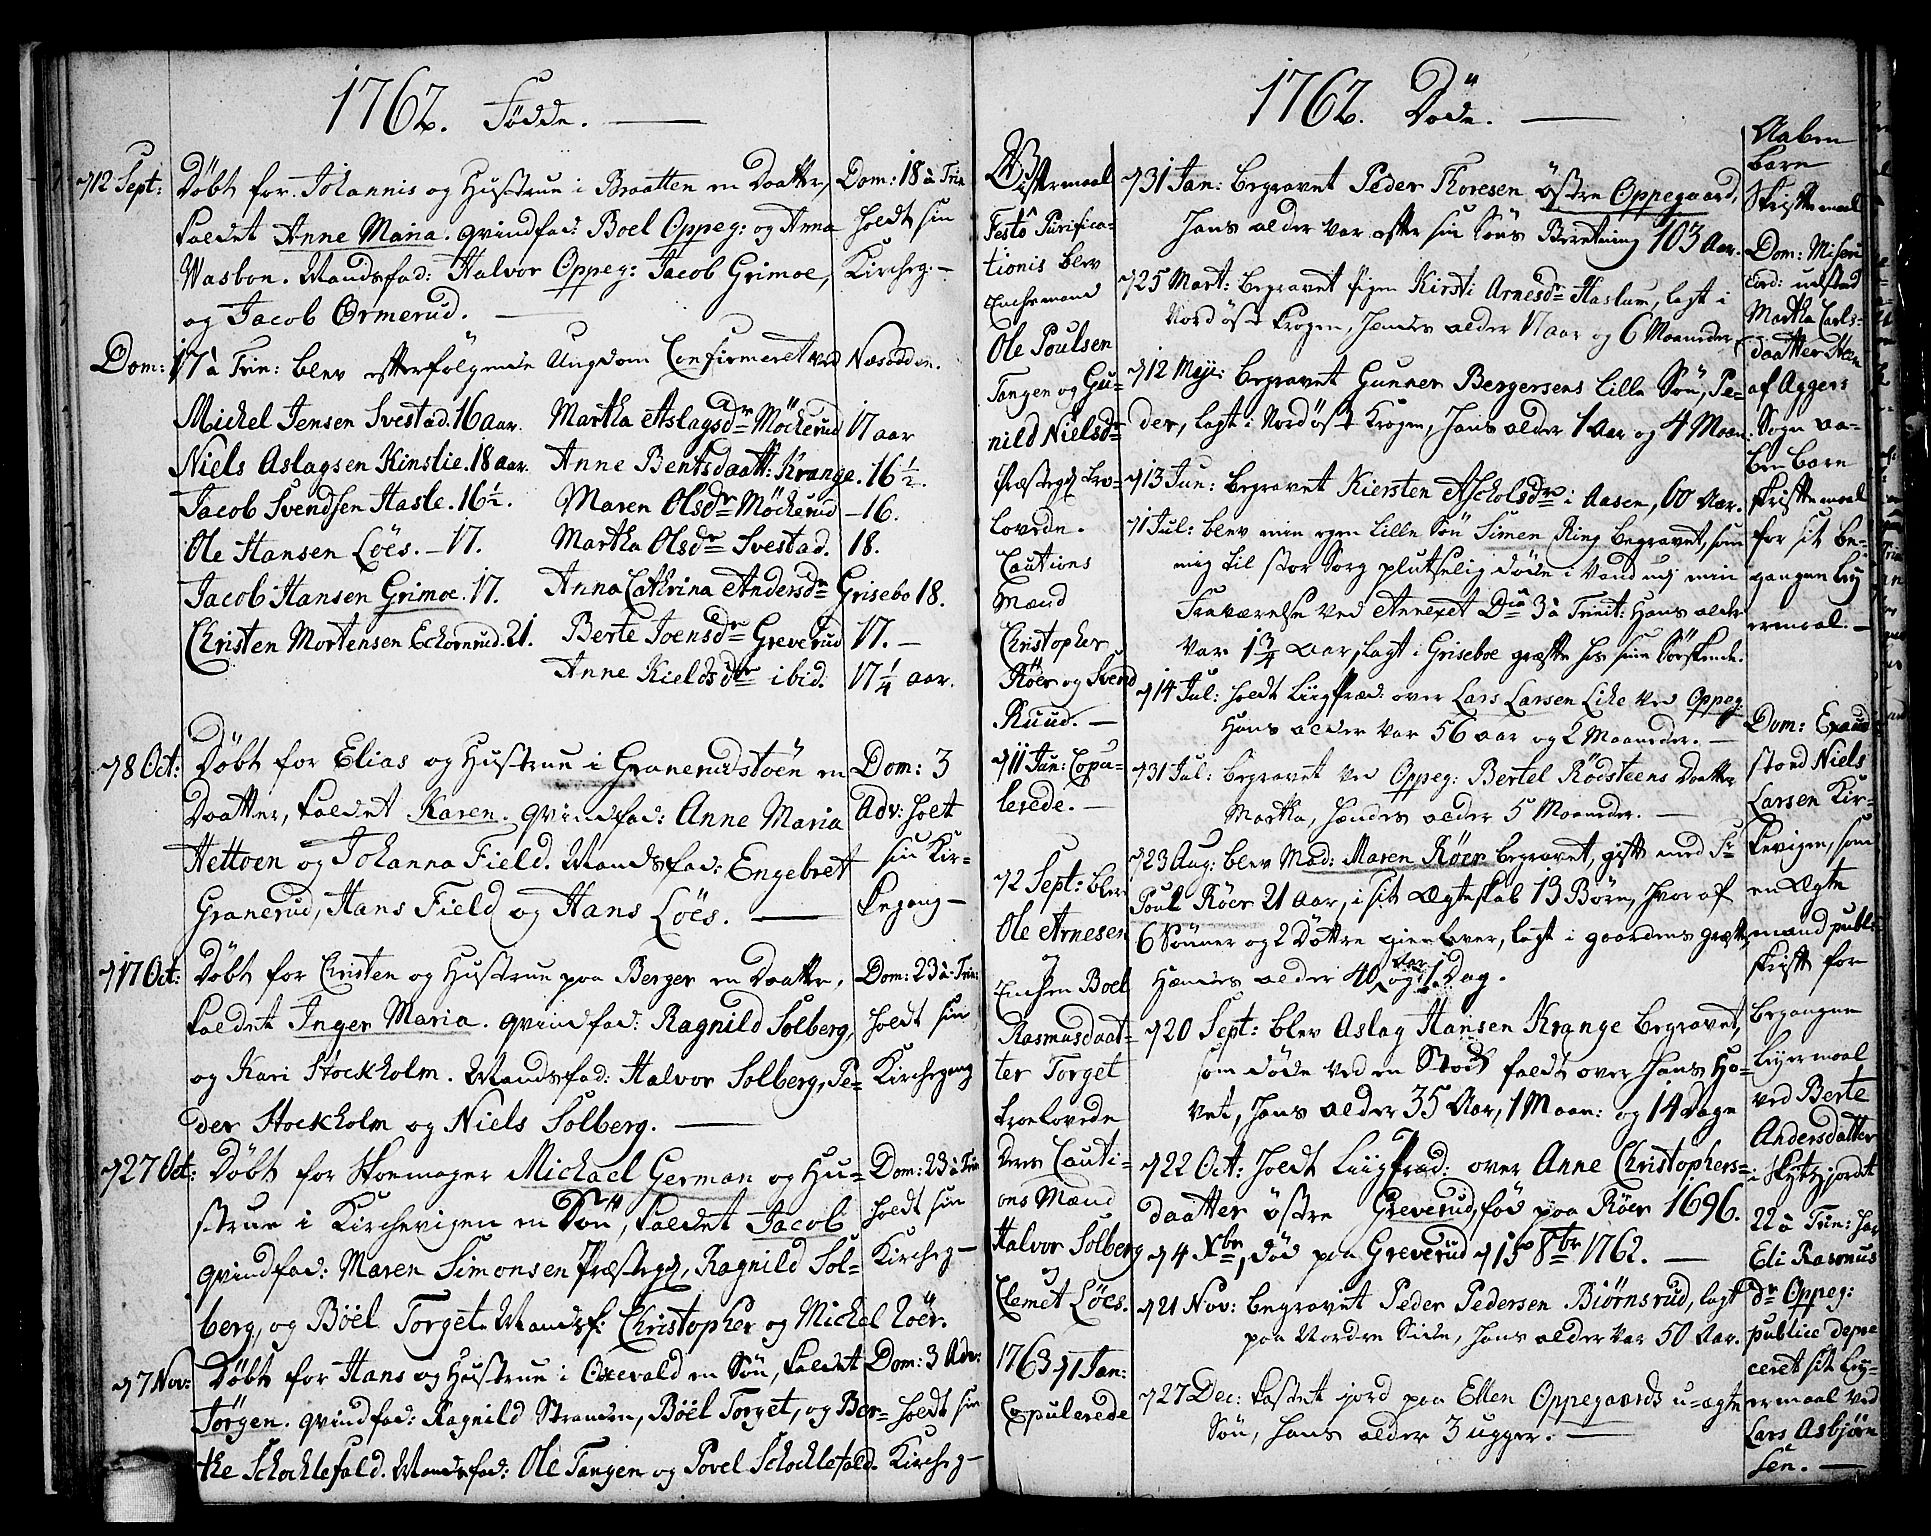 1762. Födde.
d 12 Sept: Döbt for Johannis og Hustrue i Braatten en Daatter,
kaldet Anne Maria. Qvindfad: Boel Oppeg: og Anna
Wasbon. Mandsfad: Halvor Oppeg: Jacob Grimoe,
og Jacob Ormerud.
Dom: 18 à Trin
holdt sin
Kircheg:
Dom: 17 à Trin: blev efterfölgende Ungdom Confirmeret ved Næsodden.
Michel Jensen Svestad. 16 aar. Martha Aslagsdr Möckerud 17 aar
Niels Aslagsen Kinslie. 18 aar. Anne Bentsdaatt: Krange. 16 1/2.
Jacob Svendsen Hasle. 16 1/2. Maren Olsdr Möckerud - 16.
Ole Hansen Löes. - 17. Martha Olsdr Svestad. 18.
Jacob Hansen Grimoe. 17. Anna Cathrina Andersdr Grisebo 18.
Christen Mortensen Echornrud. 21. Berte Joensdr Greverud 17. -
Anne Kieldsdr ibid. 17 1/4 aar.
d 8 Oct: Döbt for Elias og Hustrue i Granerudstöen en
Daatter, kaldet Karen. Qvindfad: Anne Maria
Hettoen og Johanna Field. Mandsfad: Engebret
Granerud, Hans Field og Hans Löes.
Dom: 3
Adv: holt
sin Kir-
kegang -
d 17 Oct: Döbt for Christen og Hustrue paa Berger en Daatter,
kaldet Inger Maria. Qvindfad: Ragnild Solberg,
og Kari Stockholm. Mandsfad: Halvor Solberg, Pe-
der Stockholm og Niels Solberg.
Dom: 23 à Trin
holdt sin
Kirchegang
d 27 Oct: Döbt for Skoemager Michael German og Hu-
strue i Kirchevigen en Sön, kaldet Jacob
Qvindfad: Maren Simonsen Præstegd, Ragnild Sol-
berg, og Böel Torget. Mandsf: Christopher og Michel Röer.
Dom: 23 à Trin
holdt sin
Kircheg -
d 7 Nov: Döbt for Hans og Hustrue i Oxevald en Sön, kaldet
Jörgen. Qvindfad: Ragnild Stranden, Böel Torget, og Ber-
the Schochlefald. Mandsfad: Ole Tangen og Povel Schochlefald.
Dom: 3 Adv:
holdt sin
Kircheg -
1762. Döde.
Festô Purifica-
tionis blev
Enchemand
Ole Poulsen
Tangen og Gu-
nild Nielsdr
Præstegd tro-
lovede.
Cautions
Mænd
Christopher
Röer og Svend
Ruud. -
d 11 Jan: Copu-
lerede. -
d 2 Sept: blev
Ole Arnesen
og
Enchen Boel
Rasmusdaat-
ter Torget
troelovede
Deres Cauti-
ons Mænd
Halvor Solberg
og
Clemet Löes.
1763 d 1 Jan:
Copulerede
d 31 Jan: begravet Peder Thoresen östre Oppegaard,
hans alder var efter sin Söns Beretning 103 Aar.
d 25 Mart: begravet Pigen Kirsti Arnesdr Haslum, lagt i
Nord öst krogen, hendes alder 17 aar og 6 Maaneder
d 12 Maji: begravet Gunner Bergersens lille Sön, Pe-
der, lagt i Nord öst krogen, hans alder 1 Aar og 4 Maan:
d 13 Jun: begravet Kiersten Ascholsdr i Aasen, 60 Aar.
d 1 Jul: blev min egen lille Sön Simen Ring begravet, som
mig til stor Sorg plutselig döde i Vand udj min
Fraværelse ved Annexet Da 3 à Trinit: Hans alder
var 1 3/4 Aar, lagt i Griseboe grafte hos sine Sörskende.
d 14 Jul: holdt Liigpræd: over Lars Larsen Liche ved Oppeg
Hans alder var 56 aar og 2 Maaneder. -
d 31 Jul: begravet ved Oppeg: Bertel Rödsteens Daatter
Martha, hendes alder 5 Maaneder. -
d 23 Aug: blev Mad: Maren Röer begravet, gift med Sr
Poul Röer 21 Aar, i sit Ægteskab 13 Börn, hvoraf
6 Sönner og 2 Döttre gienlever, lagt i gaardens grafte
Hendes alder 40 Aar og 1 Dag.
d 20 Sept: blev Aslag Hansen Krange begravet,
som döde ved en Stock faldt over hans Ho-
vet, hans alder 35 Aar, 1 Maan: og 14 Dage
d 22 Oct: holdt Liigpræd: over Anne Christophers-
daatter östre Greverud, föd paa Röer 1696.
d 4 Xbr, död paa Greverud d 15 8br 1762. -
d 21 Nov: begravet Peder Pedersen Biörnsrud, lagt
paa Nordre Side, hans alder var 50 Aar.
d 27 Dec: kastet jord paa Ellen Oppegaards u-ægte
Sön, hans alder 3 ugger. -
Aaben
bare
Skriftemaal
Dom: Miseri
cord: udstod
Martha Carls-
daatter
af Aggers
Sogn aa-
benbare
skriftemaal
for sit be-
gangne Ley
ermaal. -
Dom: Exaudi
stod Niels
Larsen Kir-
kevigen, som
en Ægte
mand publ:
skrift for
begangne
Leyermaal
ved Berte
Andersdatter
i Skytzjordet
22 à Trin: har
Eli Rasmus
dr Oppeg:
publice depre
ceret sit Ley-
ermaal ved
Lars Asbjörn
sen. -